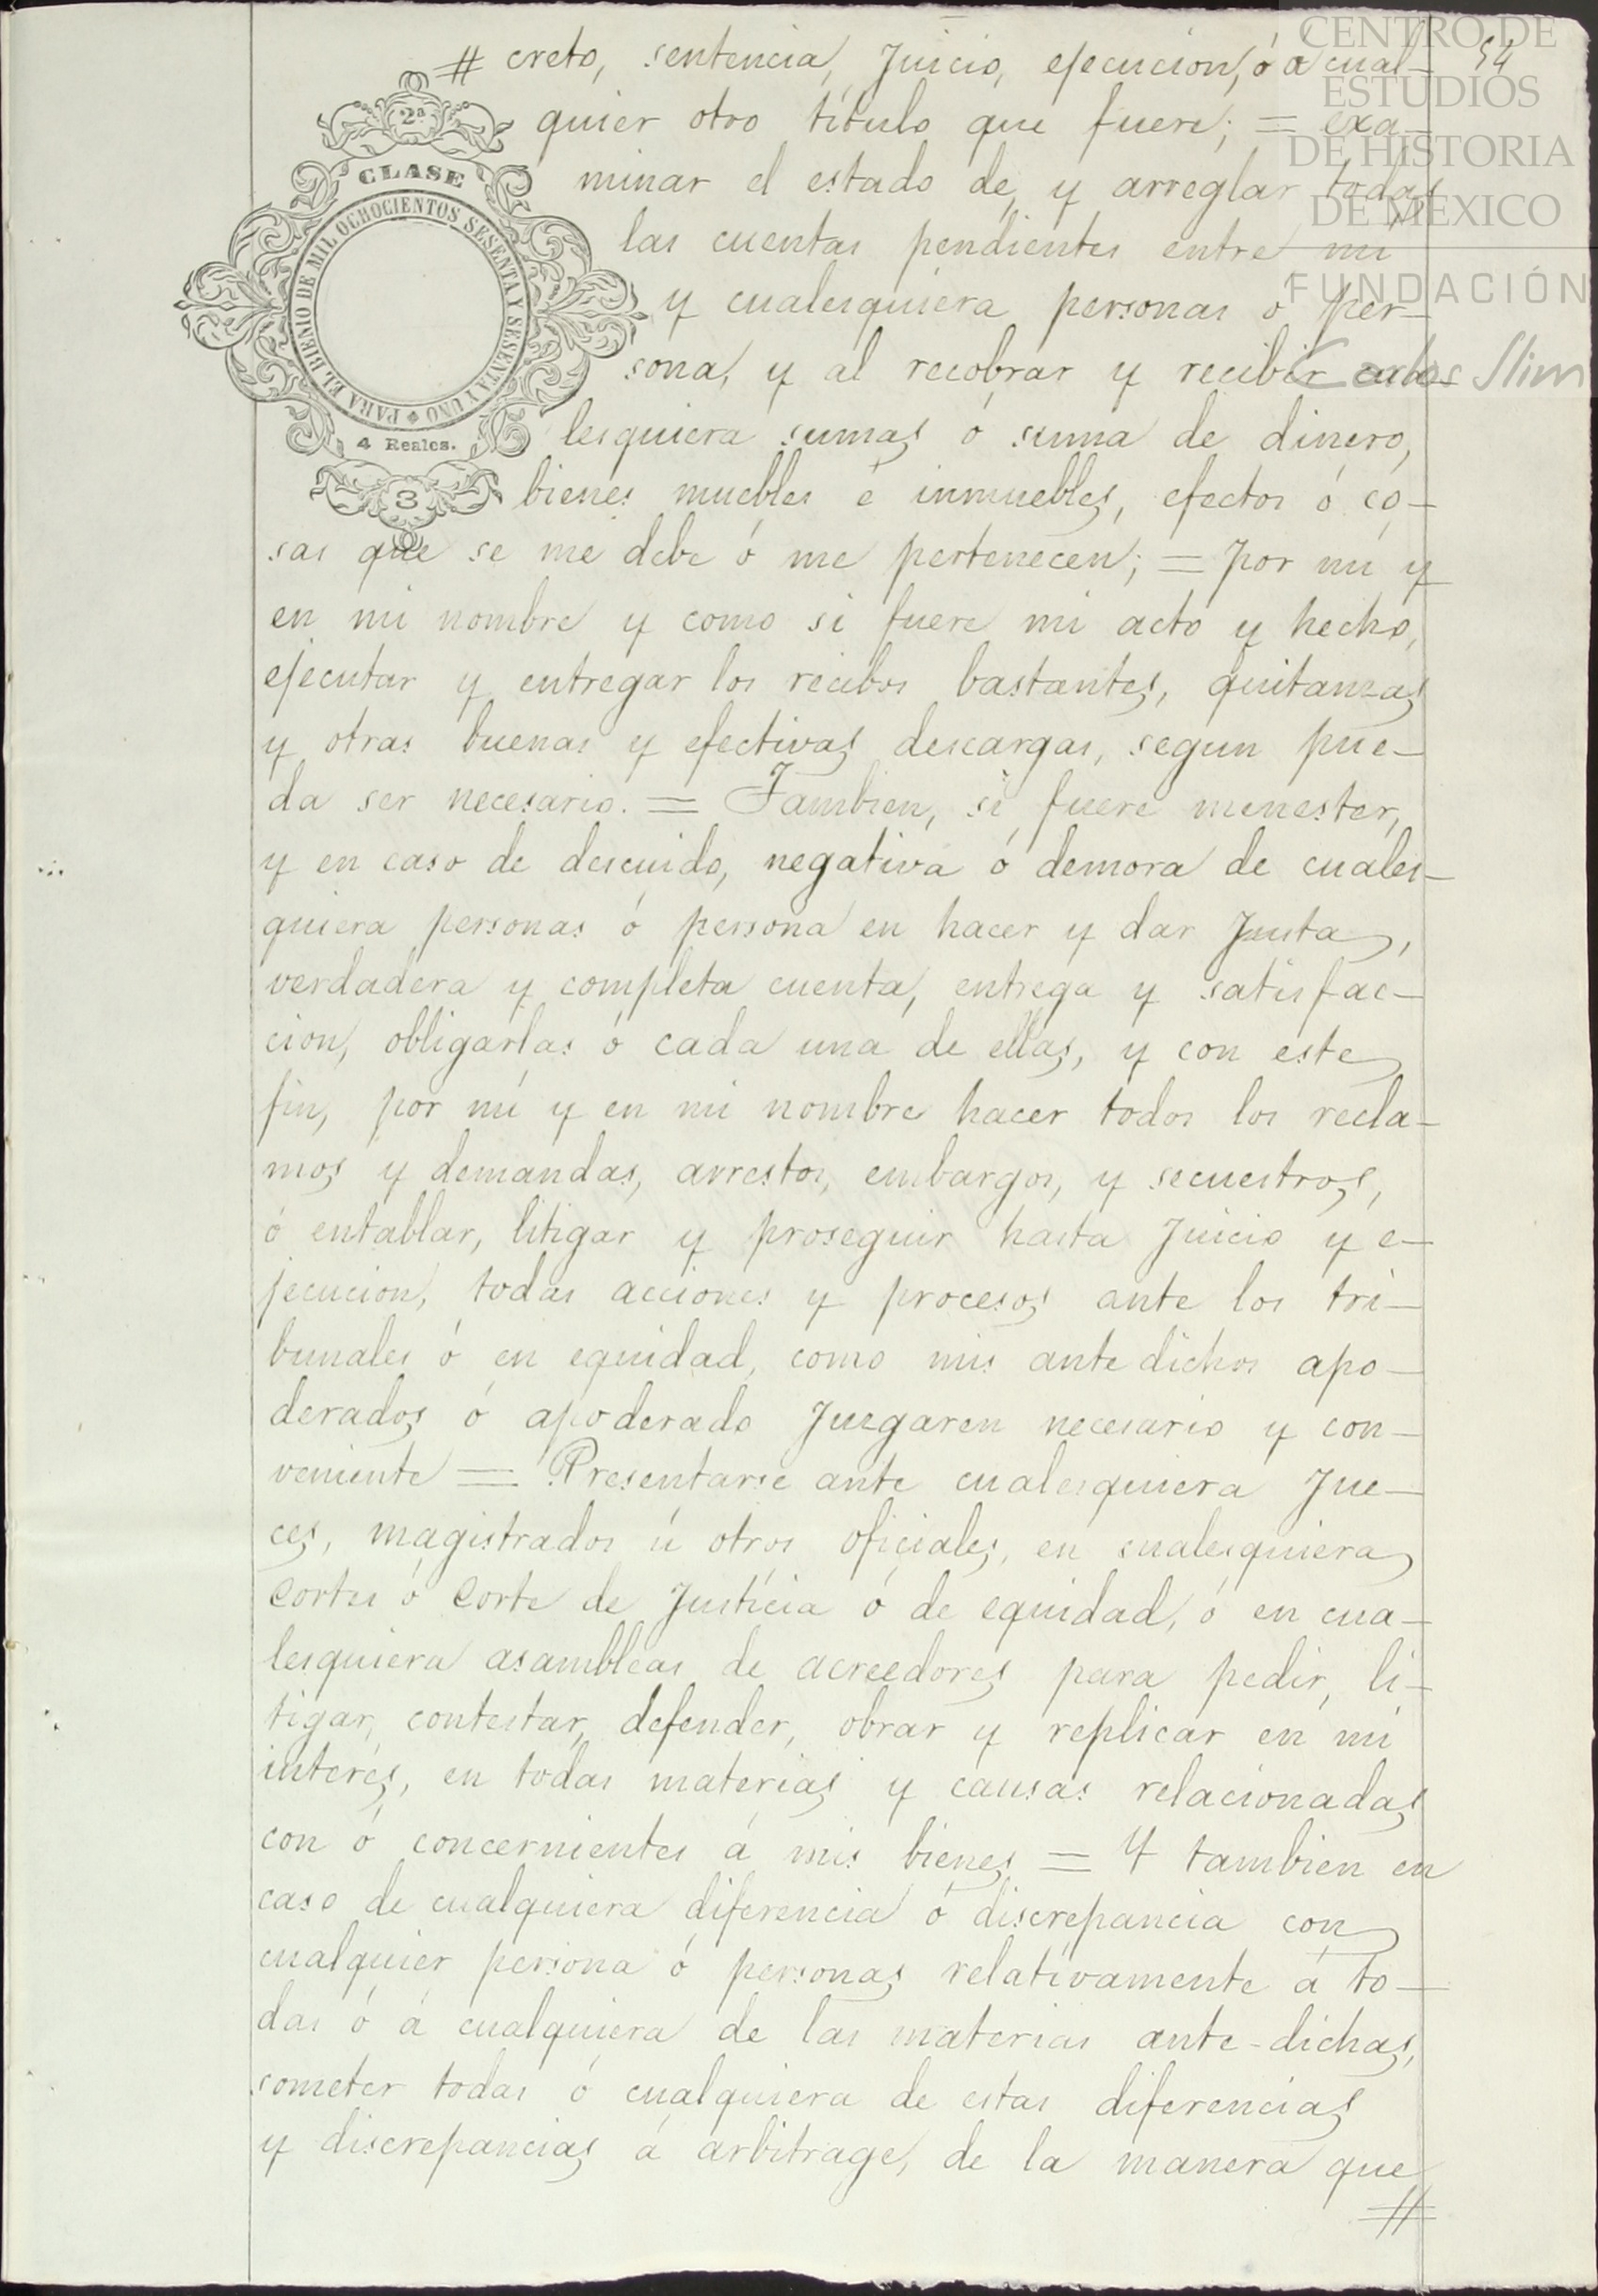 CENTRO DE
ESTUDIOS
DE HISTORIA
DE MÉXICO
FUNDACIÓN
Carlos Slim
54
2ª
CLASE
PARA EL BIENIO DE MIL OCHOCIENTOS SESENTA Y SESENTA Y UNO
4 Reales.
3
# creto, sentencia, Juicio, ejecucion, ó á cual-
quier otro título que fuere; = exa-
minar el estado de, y arreglar todas
las cuentas pendientes entre mi
y cualesquiera personas o per-
sona, y al recobrar y recibir cua-
lesquiera sumas ó suma de dinero,
bienes muebles é inmuebles, efectos ó co-
sas que se me debe ó me pertenecen; = por mí y
en mi nombre y como si fuere mi acto y hecho,
ejecutar y entregar los recibos bastantes, quitanzas
y otras buenas y efectivas descargas, segun pue-
da ser necesario. = Tambien, si fuere menester,
y en caso de descuido, negativa ó demora de cuales-
quiera personas ó persona en hacer y dar Justa,
verdadera y completa cuenta, entrega y satisfac-
cion, obligarlas ó cada una de ellas, y con este
fin, por mí y en mi nombre hacer todos los recla-
mos y demandas, arrestos, embargos, y secuestros,
ó entablar, litigar y proseguir hasta Juicio y e-
jecucion, todas acciones y procesos ante los tri-
bunales ó en equidad, como mis ante dichos apo-
derados ó apoderado Juzgaren necesario y con-
veniente = Presentarse ante cualesquiera Jue-
ces, magistrados ú otros oficiales, en cualesquiera
Cortes ó Corte de Justicia ó de equidad, ó en cua-
lesquiera asambleas de acreedores para pedir, li-
tigar, contestar, defender, obrar y replicar en mi
interés, en todas materias y causas relacionadas
con ó concernientes á mis bienes = Y tambien en
caso de cualquiera diferencia ó discrepancia con
cualquier persona ó personas relativamente á to-
das ó á cualquiera de las materias ante-dichas,
someter todas ó cualquiera de estas diferencias
y discrepancias á arbitrage, de la manera que
#